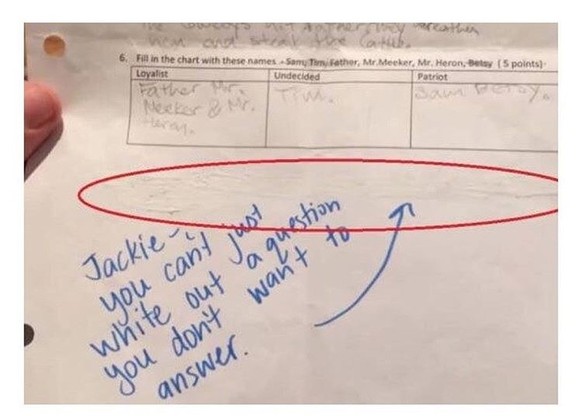 the Cowboys hit
them and steal the Cattle.
6. Fill in the chart with these names - Sam, Tim, Father, Mr. Meeker, Mr. Heron, Betsy ( 5 points)
Loyalist Undecided Patriot
Father Mr. Tim. Sam Betsy.
Meeker & Mr.
Heron.
Jackie -
you can't just
white out a question
you don't want to
answer.